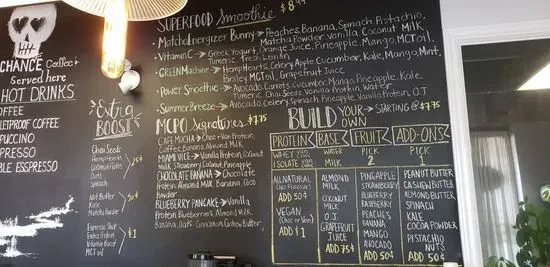 SUPERFOOD Smoothie $8
MatchaEnergizer Bunny → Peaches, Banana, Spinach, Pistachio,
Matcha Powder, Vanilla, Coconut Milk
Vitamin C → Greek Yogurt, Orange Juice, Pineapple, Mango, MCT oil,
Turmeric, Fresh Lemon
GREEN Machine → Hemp Hearts, Celery, Apple, Cucumber, Kale, Mango, Mint,
Parsley, MCT oil, Grapefruit Juice
Power Smoothie → Avocado, Carrots, Cucumber, Mango, Pineapple, Kale
Turmeric, Chia Seeds, Vanilla Protein, Water
Summer Breeze → Avocado, Celery, Spinach, Pineapple, Vanilla Protein, O.J
CHANCE Coffee
served here
HOT DRINKS
COFFEE
BULLETPROOF COFFEE
CAPPUCCINO
ESPRESSO
DOUBLE ESSPRESO
Extra
BOOST
Chai Seeds
Hemp Hearts
Coconut Flakes
Oats
Spinach
25¢
Nut Butter
Kale
Matcha Powder
50¢
Espresso Shot
Extra Protein
Vitamin Boost
MCT oil
$1
MCPO Signatures $7.75
CAFE MOCHA → Choc Protein,
Coffee Banana, Almond Milk
MIAMI VICE → Vanilla Protein, Coconut
Milk, Strawberry, Coconut, Pineapple
CHOCOLATE BANANA → Chocolate
Protein, Almond Milk, Banana, Coco
Powder
BLUEBERRY PANCAKE → Vanilla
Protein, Blueberries, Almond Milk
Banana, Oats, Cinnamon, Cashew Butter
BUILD YOUR OWN → STARTING @ $7.75
PROTEIN
WHEY
ISOLATE
ALL NATURAL
(No Flavour)
ADD 50¢
VEGAN
(Choc or Van)
ADD $1
BASE
WATER
MILK
ALMOND
MILK
COCONUT
MILK
O.J
GRAPEFRUIT
JUICE
ADD 75¢
FRUIT
PICK
2
PINEAPPLE
STRAWBERRY
BLUEBERRY
RASPBERRY
PEACHES
BANANA
MANGO
AVOCADO
ADD 50¢
ADD-ONS
PICK
1
PEANUT BUTTER
CASHEW BUTTER
ALMOND BUTTER
SPINACH
KALE
COCOA POWDER
PISTACHIO
NUTS
ADD 50¢